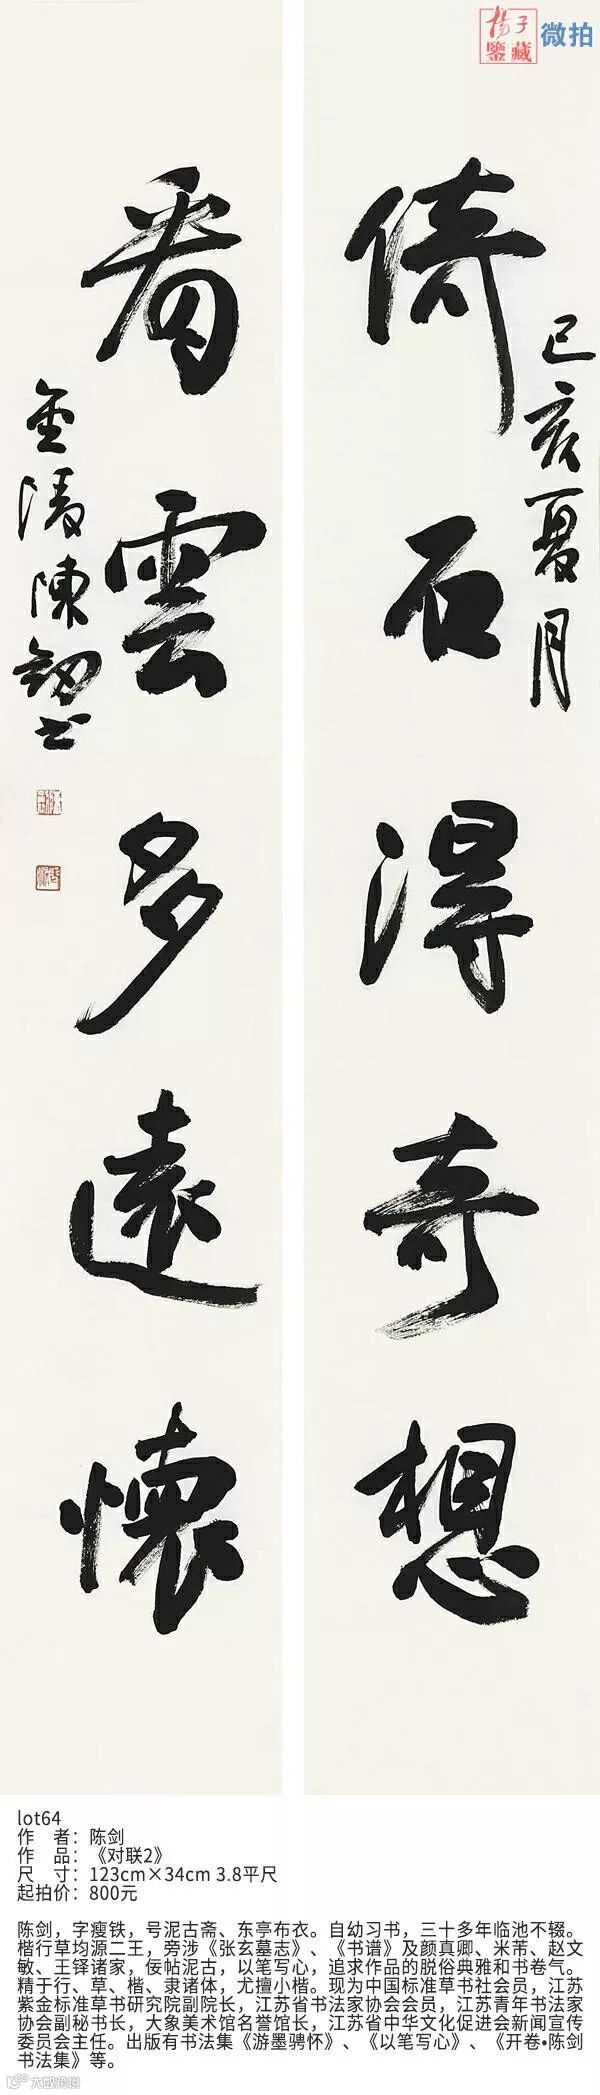 杨子
鉴藏
微拍
倚石得奇想
己亥夏月
看雲多遠懷
金陵陳劍书
lot64
作 者：陈剑
作 品：《对联2》
尺 寸：123cm×34cm 3.8平尺
起拍价：800元
陈剑，字瘦铁，号泥古斋、东亭布衣。自幼习书，三十多年临池不辍。
楷行草均源二王，旁涉《张玄墓志》、《书谱》及颜真卿、米芾、赵文
敏、王铎诸家，佞帖泥古，以笔写心，追求作品的脱俗典雅和书卷气。
精于行、草、楷、隶诸体，尤擅小楷。现为中国标准草书社会员，江苏
紫金标准草书研究院副院长，江苏省书法家协会会员，江苏青年书法家
协会副秘书长，大象美术馆名誉馆长，江苏省中华文化促进会新闻宣传
委员会主任。出版有书法集《游墨骋怀》、《以笔写心》、《开卷•陈剑
书法集》等。
大数跨境